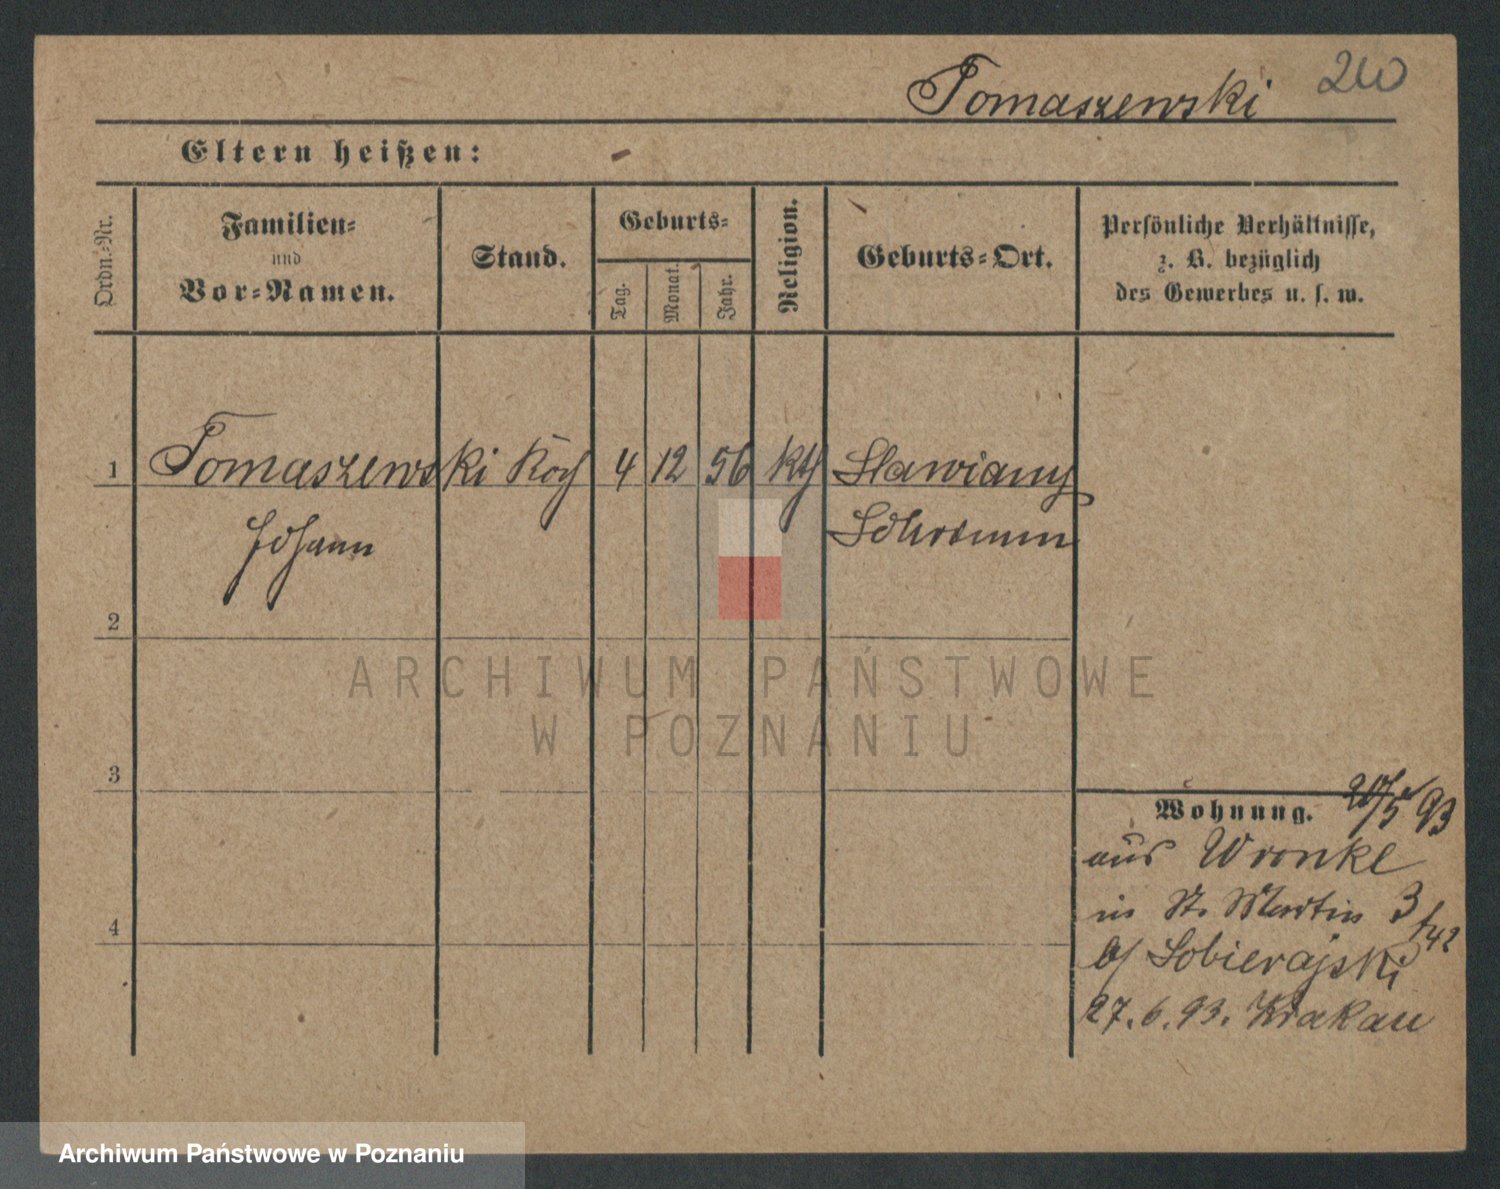 Tomaszewski 210
Eltern heißen: -
Ordn.-Nr.
Familien-
und
Vor-Namen.
Stand.
Geburts-
Tag.
Monat.
Jahr.
Religion.
Geburts-Ort.
Persönliche Verhältnisse,
z. B. bezüglich
des Gewerbes u. s. w.
1 Tomaszewski Koch 4 12 56 kth Slawiany
Johann Schrimm
2
ARCHIWUM PAŃSTWOWE
W POZNANIU
3
Wohnung. /5 93
aus Wronke
in St. Martin 3
4
b/ Sobierajski
27.6.93. Krakau
Archiwum Państwowe w Poznaniu